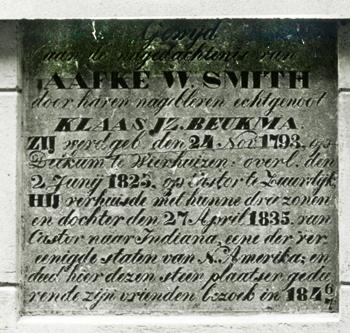 Gewyd
aan de nagedachtenis van
AAFKE W. SMITH
door haren nagebleven echtgenoot
KLAAS JZ. BEUKMA
ZIJ werd geb. den 24 Nov. 1793, op
te Vierhuizen: overl. den
2 Junij 1825, op Castor te Zuurdijk.
HIJ verhuisde met hunne drie zonen
en dochter den 27 April 1835, van
Castor naar Indiana, eene der ver
eenigde staten van N. Amerika; en
deed hier dezen steen plaatsen gedu
rende zijn vrienden bezoek in 184 6/7